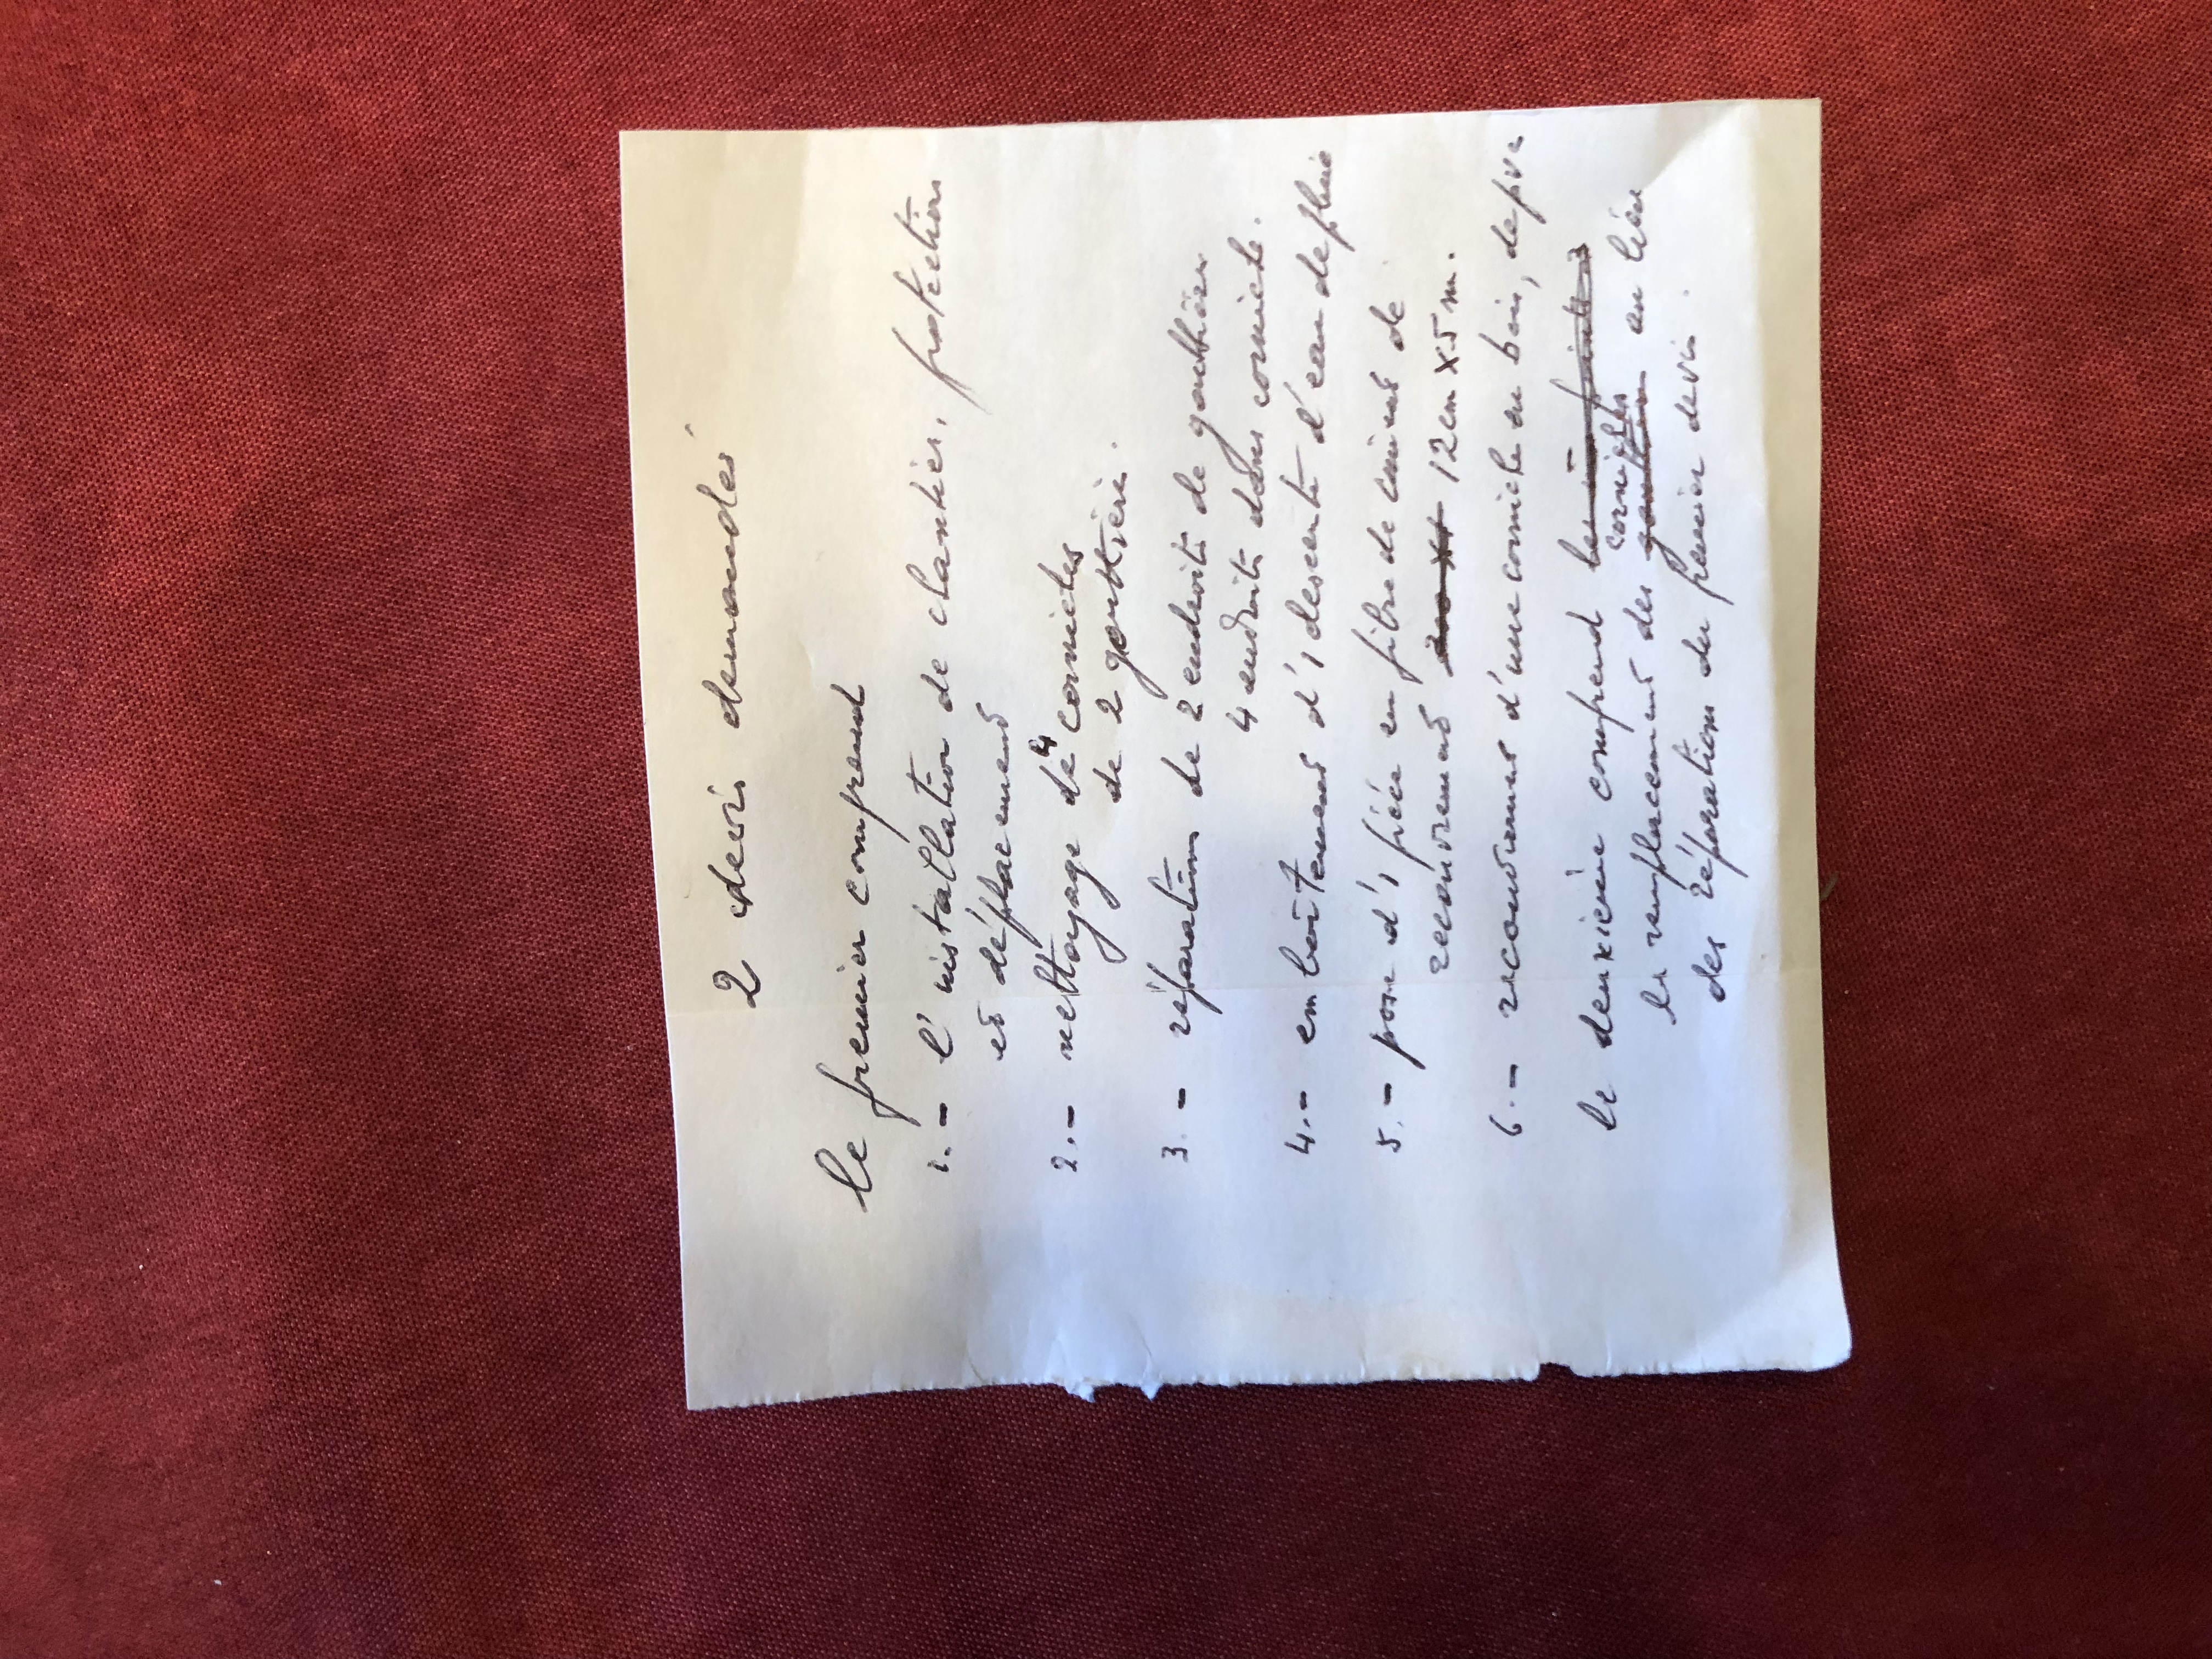 2 devis demandés
le premier comprend
1.- l'installation de chantier, protection
et déplacement
2.- nettoyage de 4 corniches
de 2 gouttière.
3.- réparation de 2 endroits de gouttière
4 endroits dans corniche.
4.- emboitement d'1 descente d'eau de pluie
5.- pose d'1 pièce en fibre de ciment de
recouvrement 12 cm x 5 m.
6.- recouvrement d'une corniche en bois, de pvc
le deuxième comprend
le remplacement des corniches au lieu
des réparations du premier devis.